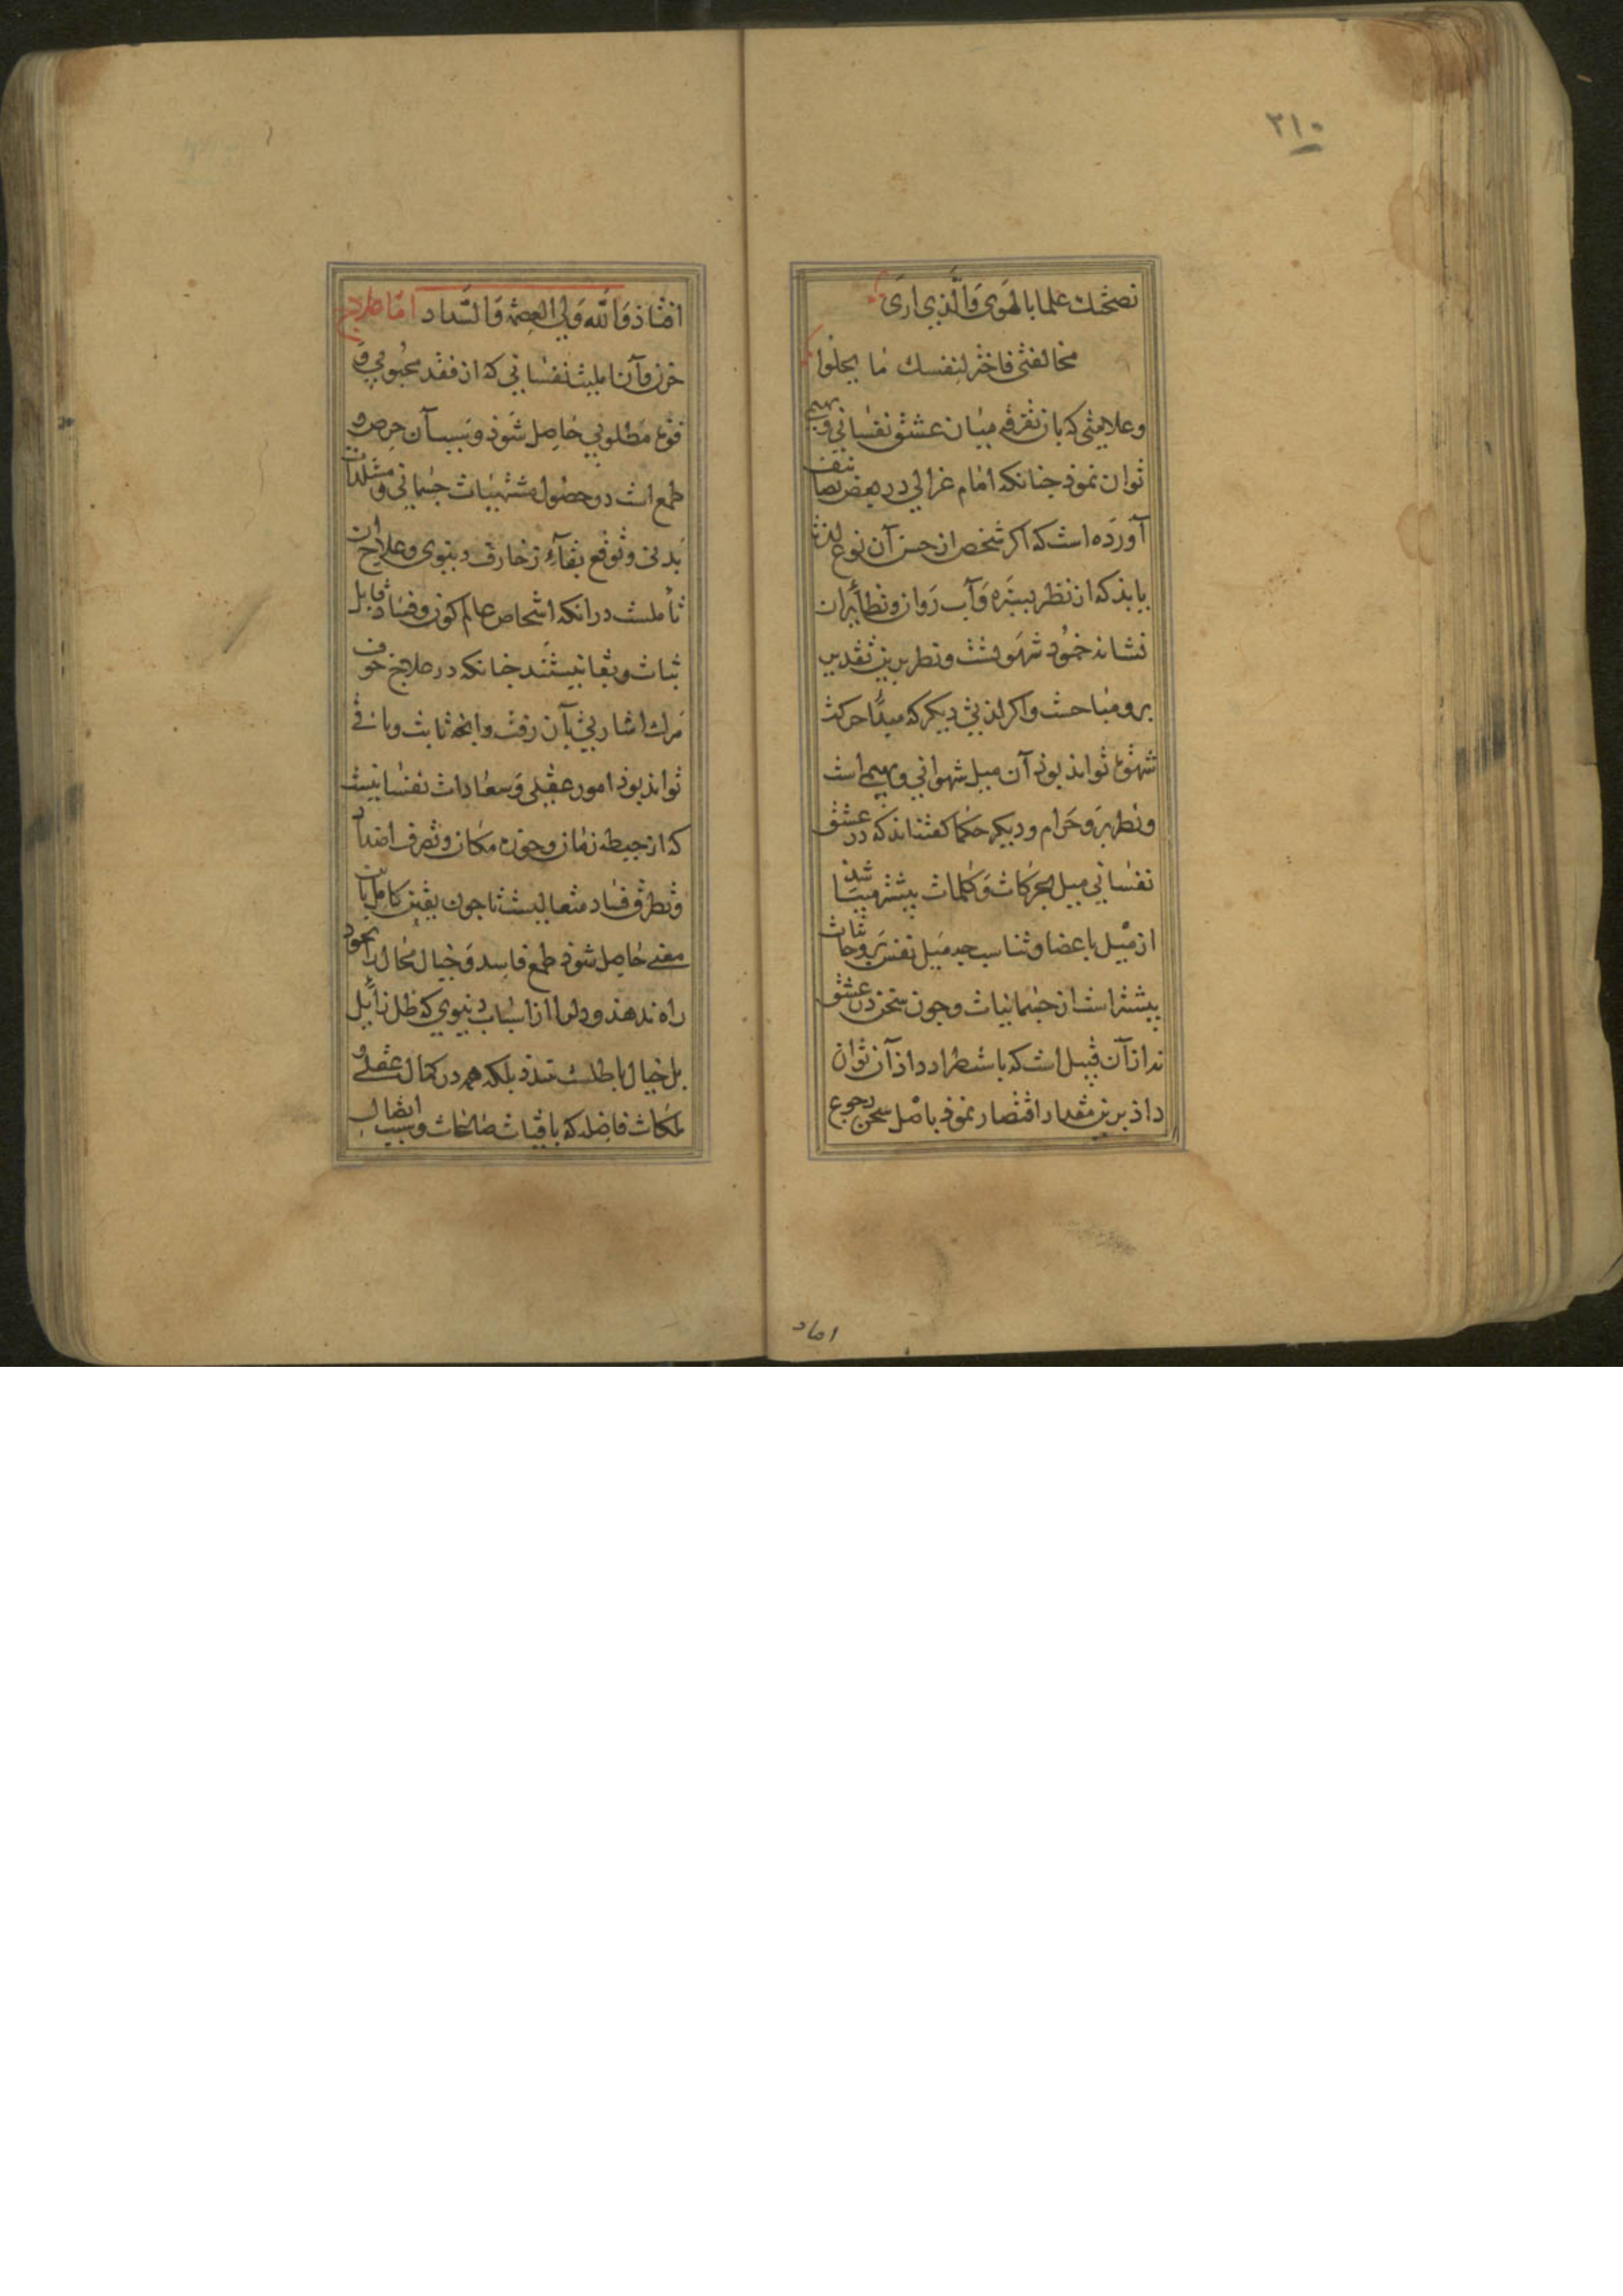 ٢١٠
نصحتك علما بالهوى وَالَّذي ارَى
مخالفتى فاختر لنفسك مَا يحلوا
وعلامتى كه بان تفرقه ميان عشق نفسانى وبهيمى
توان نموذ جنانكه امَام غزالي در بعض تصانيف
آورده است كه اكر شخص از حسن آن نوع لذت
يابذ كه از نظر بسبزه وَآب رَوان ونظاير آن
نشانه خمود شهوتست ونظر برين تقدير
برو مباحست واكر لذتى ديكر كه مبدأ حركت
شهوة تواند بوذ آن ميل شهوانى وبهيمى است
ونظر برو حَرام وديكر حكما كفته‌اند كه در عشق
نفسانى ميل بحركات وَكلمات بيشتر ميباشد
از ميل باعضا وتناسب جه ميل نفس بروحانيات
بيشتر است از جسمانيات وجون سخن در عشق
نه از آن قبيل است كه باستطراد داد آن توان
داد برين مقدار اقتصار نموذ باصل سخن رجوع
افتاذ وَالله وَلي العصمة وَالسّداد امّا علاج
حزن وآن المیست نفسانى كه از فقد محبوبى وَ
فوت مطلوبى حاصل شوذ وبسبب آن حرص و
طمع است در حصول مشتهيات جسمانى ومستلذات
بَدنى وتوقع بقآء زخارف دنيوى وعلاج آن
تأملست در انكه اشخاص عالم كون وفساد قابل
ثبات وبقا نيستند جنانكه در علاج خوف
مَرك اشارتى بآن رفت وانجه ثابت وباقى
تواند بوذ امور عقلى وَسعادات نفسانيست
كه از حيطه زمان وحوزه مكان وتصرف اضداد
وتطرق فساد متعاليست تا جون يقين كامل بان
معنى حاصل شوذ طمع فاسد وَخيال محال بخود
راه ندهذ ودل را از اسباب دنيوى كه ظل زائل
بل خيال باطلست نبندد بلكه همه در كمال عقلى و
ملكات فاضله كه باقيات صالحات وسبب اتصال
اماد